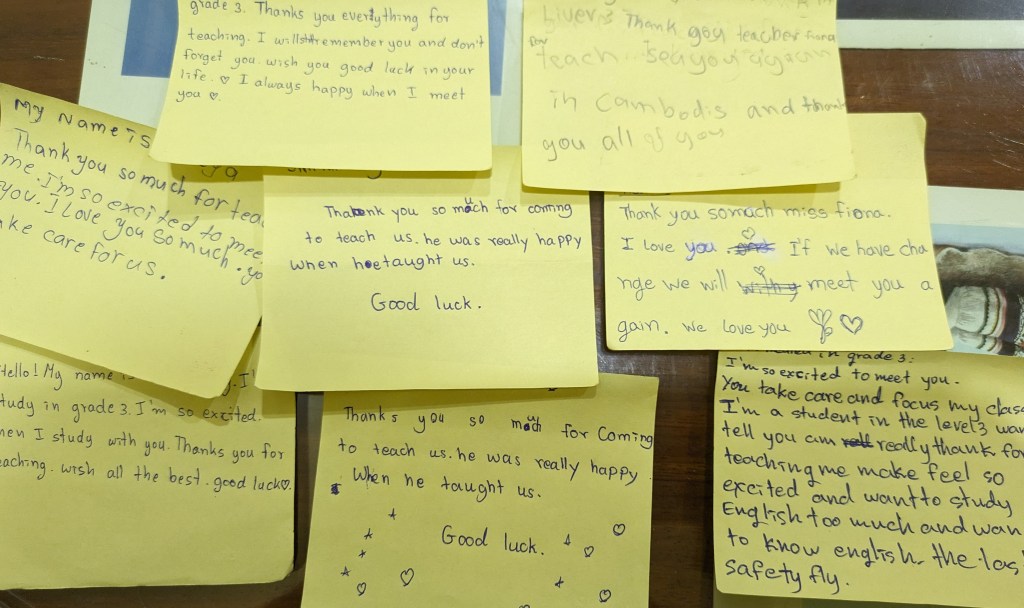 grade 3. Thanks you everything for
teaching. I will remember you and don't
forget you. wish you good luck in your
life. ♡ I always happy when I meet
you ♡.
Thank you teacher fiona
teach. see you again
in Cambodis and thank
you all of you
My Name is
Thank you so much for tea
me. I'm so excited to mee
you. I Love you so much. yo
ke care for us.
Thank you so much for coming
to teach us. he was really happy
when he taught us.
Good luck.
Thank you somach miss fiona.
I love you. If we have cha
nge we will meet you a
gain. we love you ♡
Hello! My name is
tudy in grade 3. I'm so excited.
hen I study with you. Thanks you for
eaching. wish all the best. good luck♡.
Thanks you so much for Coming
to teach us. he was really happy
When he taught us.
Good luck.
in grade 3.
I'm so excited to meet you.
You take care and focus my class
I'm a student in the level 3 wan
tell you am really thank for
teaching me make feel so
excited and want to study
English too much and wan
to know english. the las
safety fly.